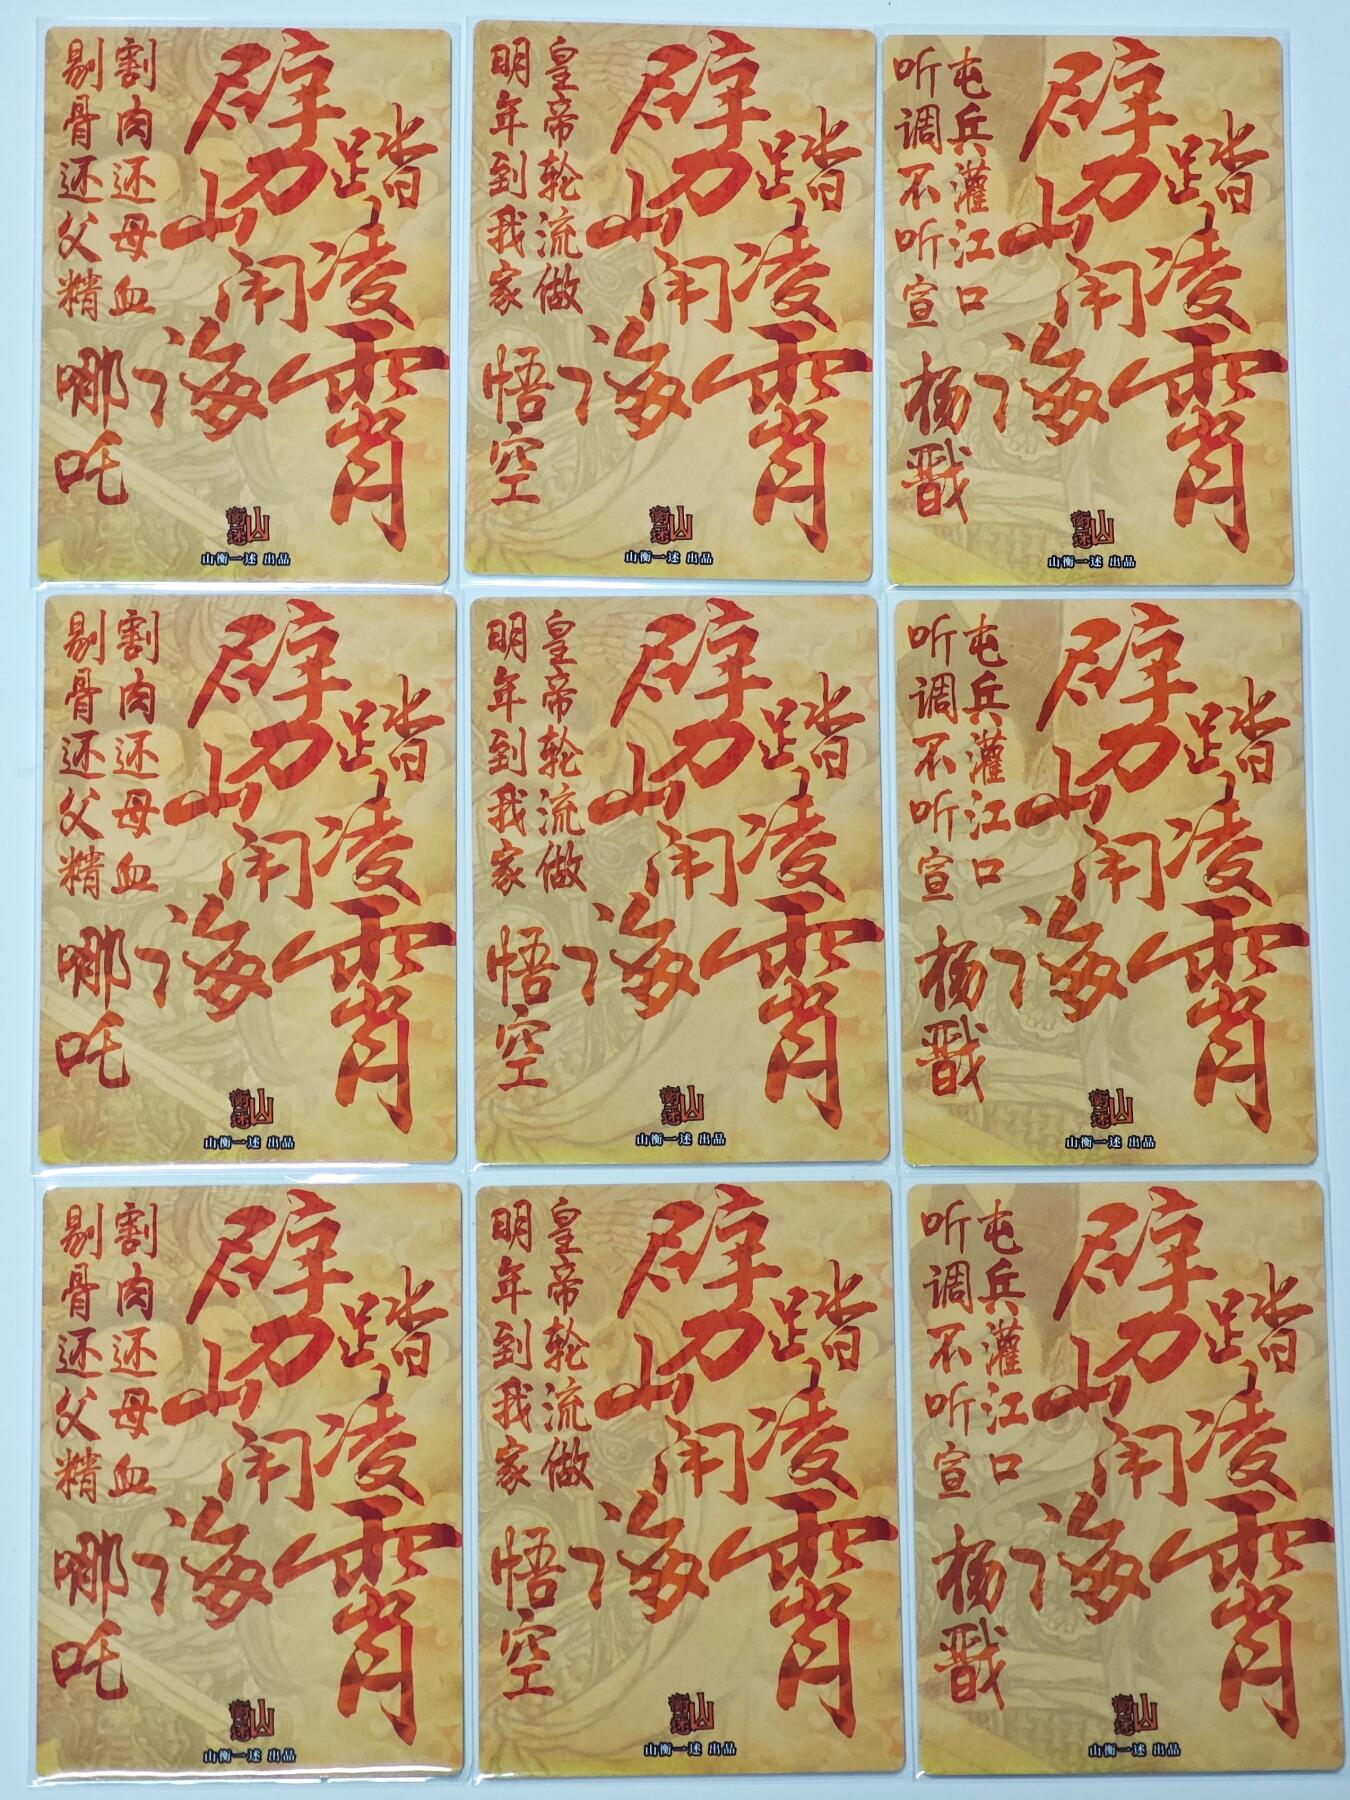 劈山闹海
踏凌霄
割肉还母血
剔骨还父精
哪吒
山衡一述
山衡一述 出品
劈山闹海
踏凌霄
皇帝轮流做
明年到我家
悟空
山衡一述
山衡一述 出品
劈山闹海
踏凌霄
屯兵灌江口
听调不听宣
杨戬
山衡一述
山衡一述 出品
劈山闹海
踏凌霄
割肉还母血
剔骨还父精
哪吒
山衡一述
山衡一述 出品
劈山闹海
踏凌霄
皇帝轮流做
明年到我家
悟空
山衡一述
山衡一述 出品
劈山闹海
踏凌霄
屯兵灌江口
听调不听宣
杨戬
山衡一述
山衡一述 出品
劈山闹海
踏凌霄
割肉还母血
剔骨还父精
哪吒
山衡一述
山衡一述 出品
劈山闹海
踏凌霄
皇帝轮流做
明年到我家
悟空
山衡一述
山衡一述 出品
劈山闹海
踏凌霄
屯兵灌江口
听调不听宣
杨戬
山衡一述
山衡一述 出品